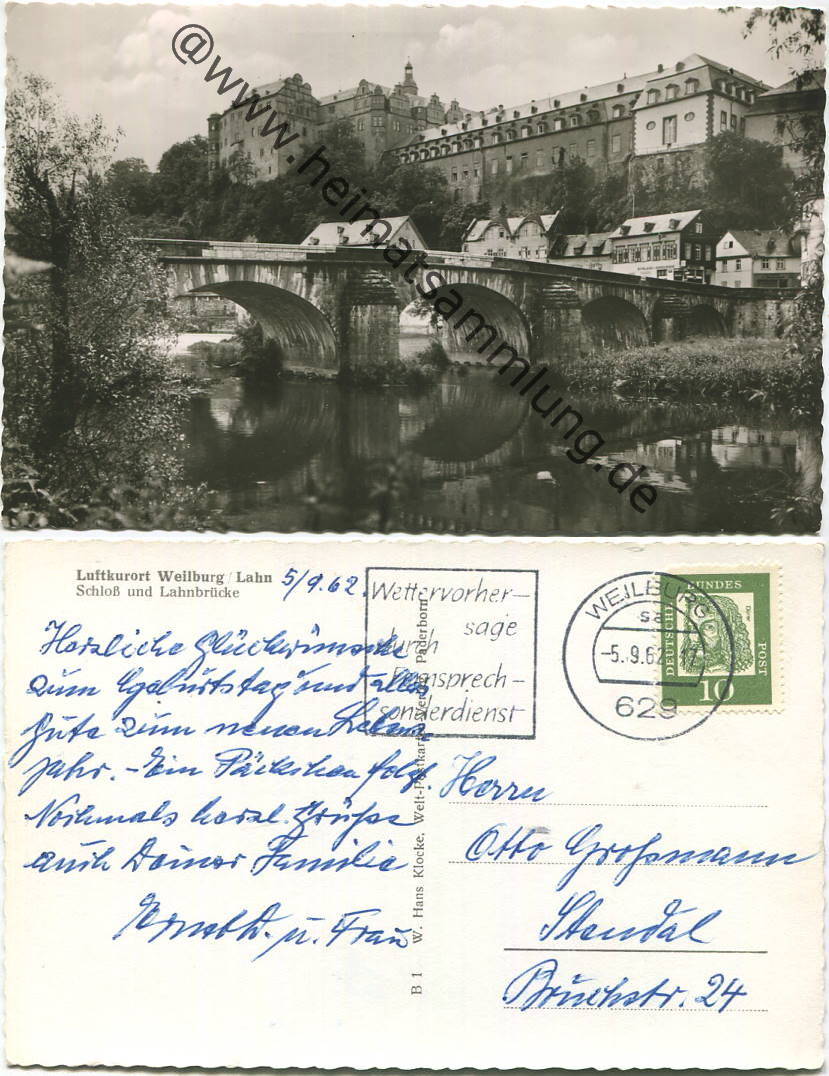 @www.heimatsammlung.de
Luftkurort Weilburg/Lahn
Schloß und Lahnbrücke
5/9.62.
Herzliche Glückwünsche
zum Geburtstag und alles
Gute zum neuen Lebens
jahr. - Ein Päckchen folgt.
Nochmals herzl. Grüße
auch Deiner Familie
u. Frau
Wettervorher-
sage
durch
Fernsprech-
sonderdienst
WEILBURG
-5.-9.62
629
DEUTSCHE BUNDESPOST
Dürer
10
B 1 W. Hans Klocke, Welt-Postkarten-Verlag, Paderborn
Herrn
Otto Großmann
Stendal
Bruchstr. 24